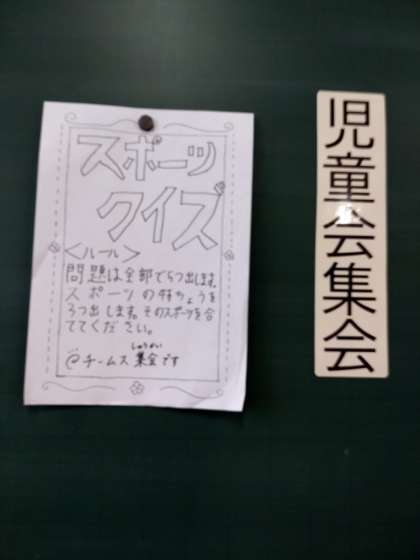 スポーツ
クイズ
<ルール>
問題は全部で5つ出します。
スポーツの特ちょうを
3つ出します。そのスポーツを合
ててください。
しゅうかい
@チームス集会です
児童会集会